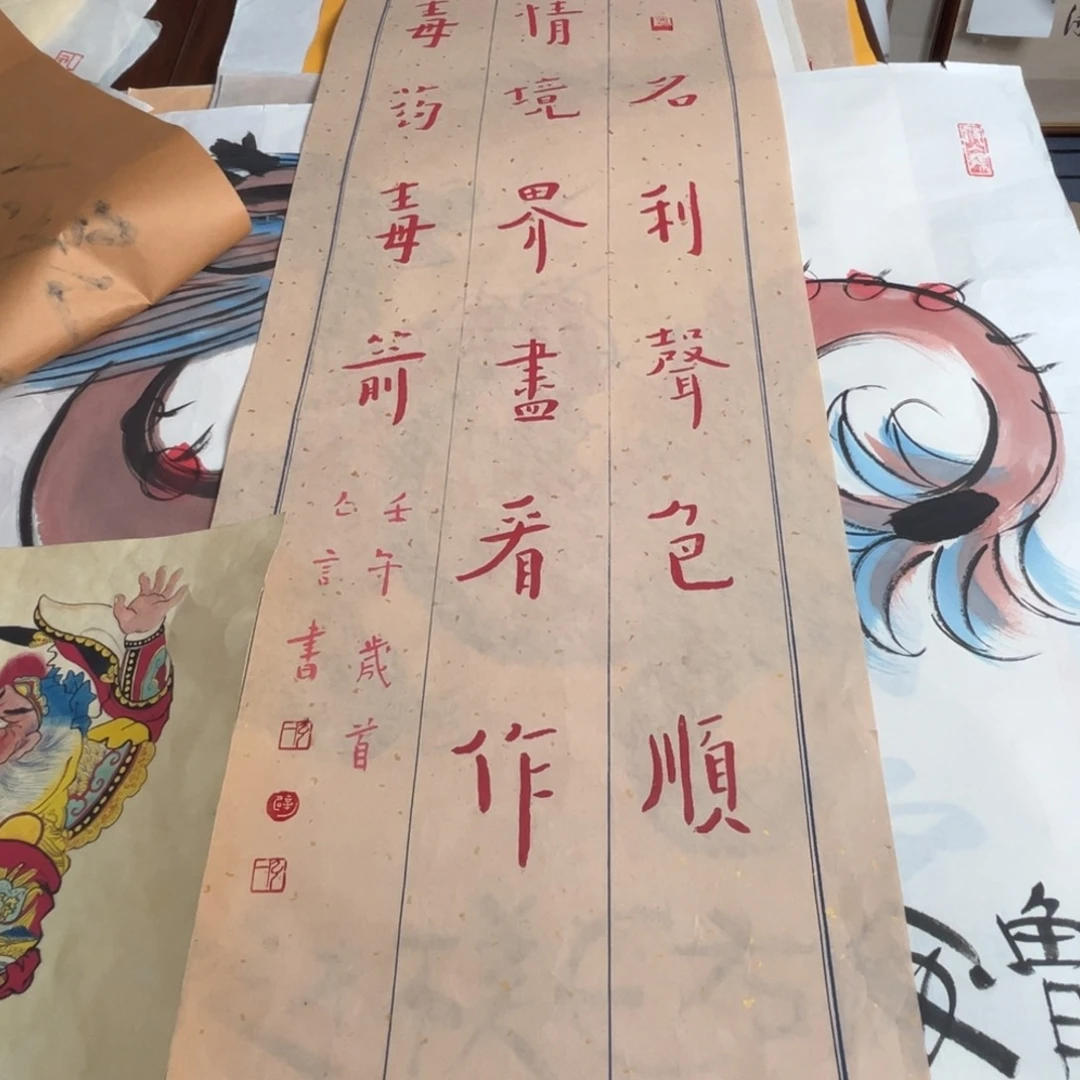 名利聲色順
情境界盡看作
毒药毒箭
壬午歲首
亼言書
魯